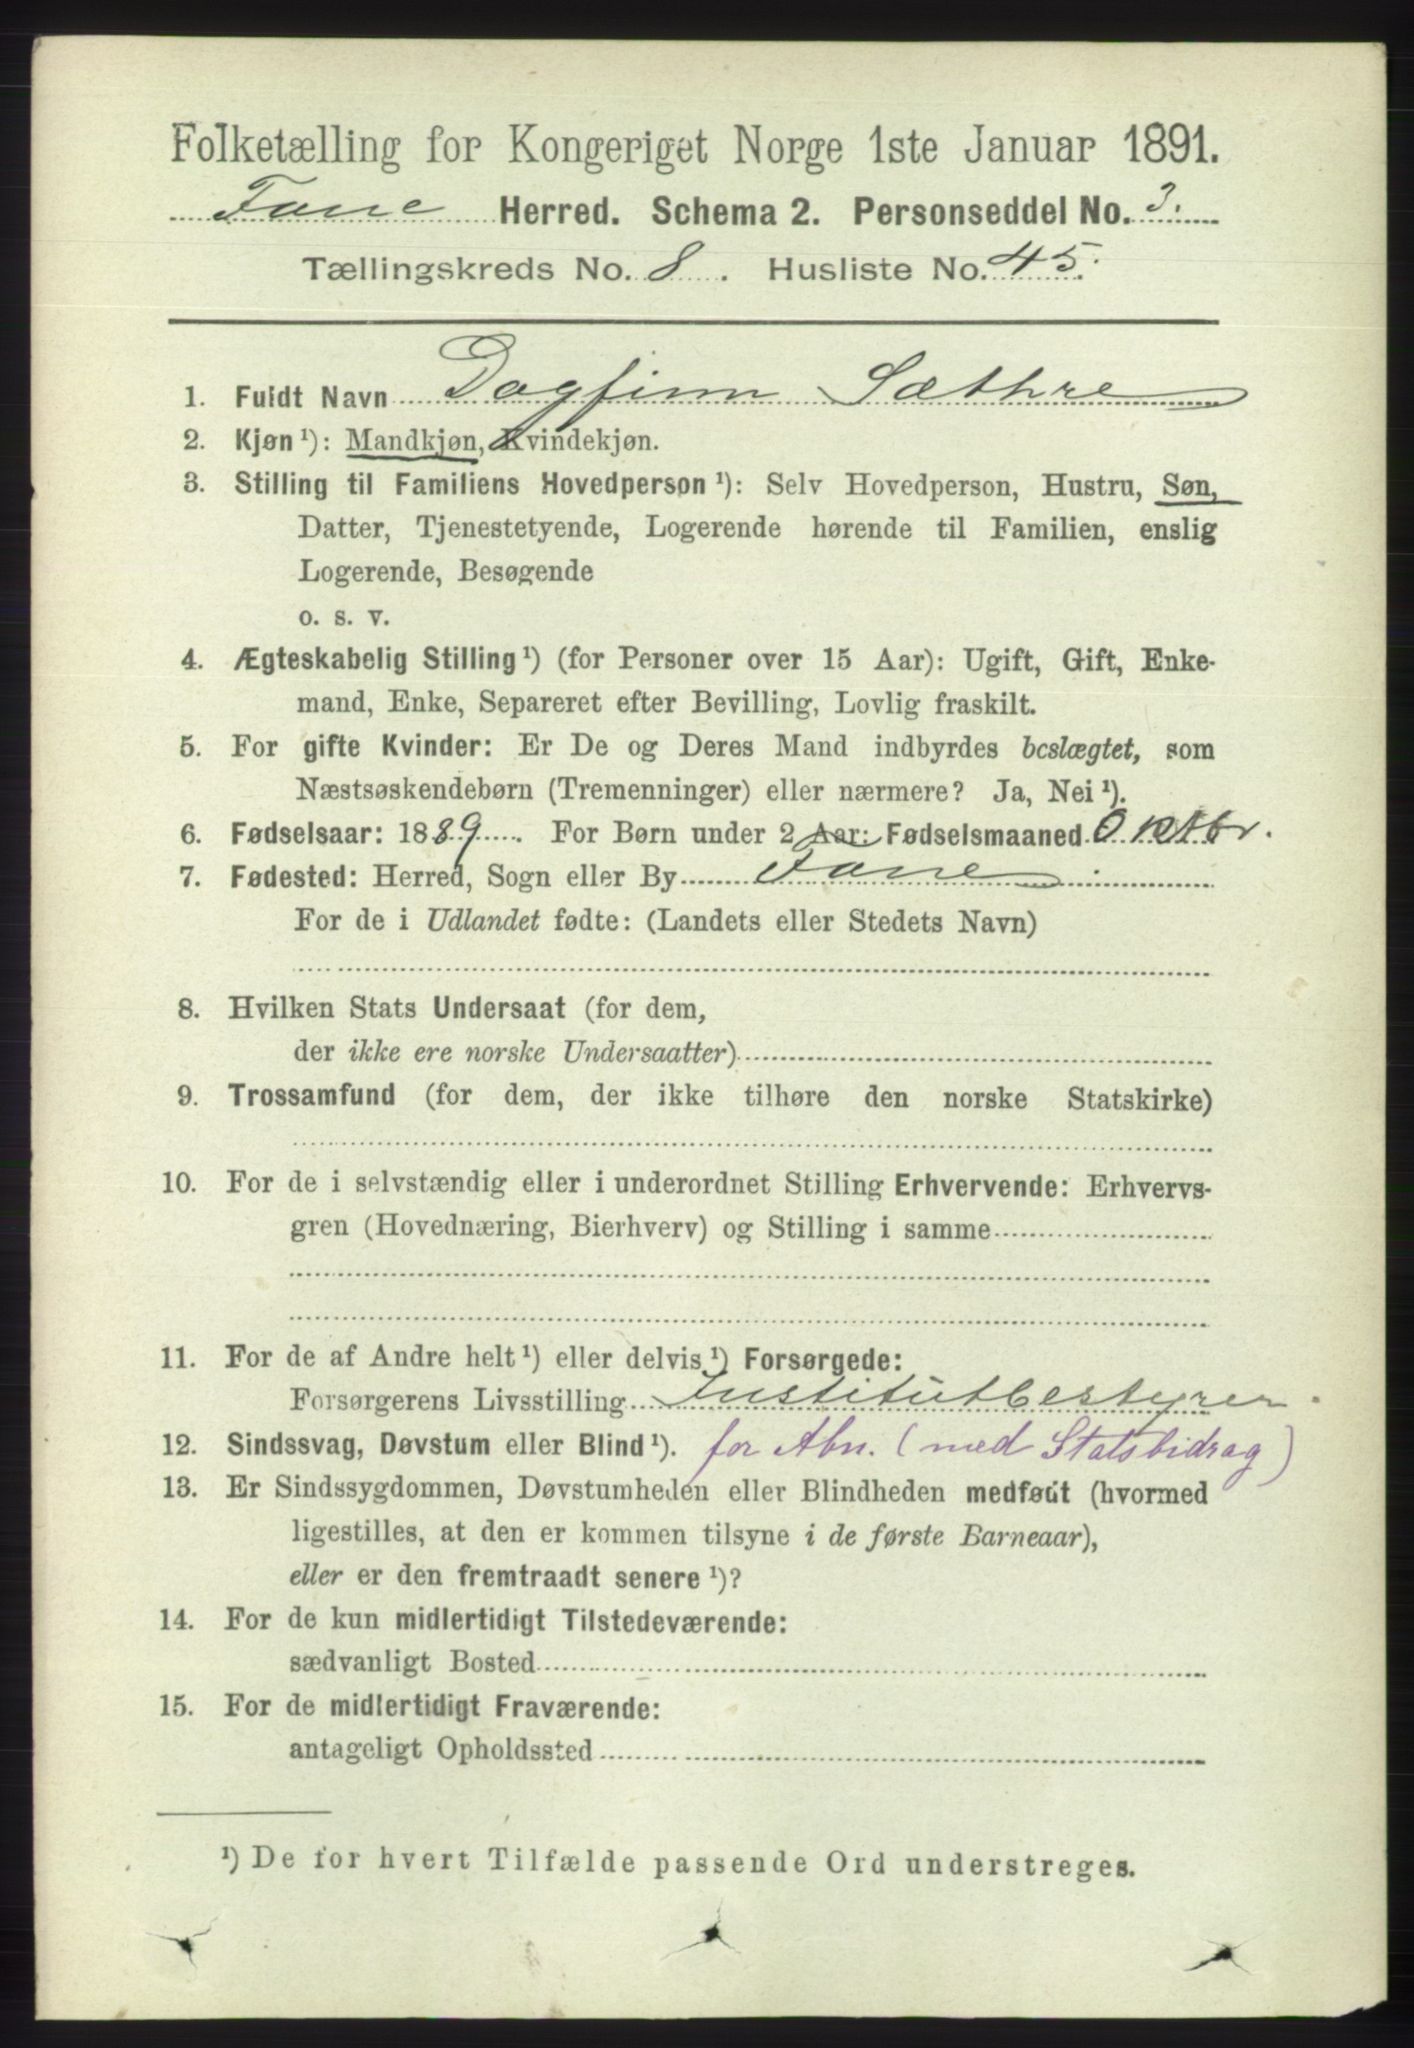 Folketælling for Kongeriget Norge 1ste Januar 1891.
Fane Herred. Schema 2. Personseddel No. 3.
Tællingskreds No. 8. Husliste No. 45.
1. Fuldt Navn Dagfinn Sæthre
2. Kjøn ¹): Mandkjøn, Kvindekjøn.
3. Stilling til Familiens Hovedperson ¹): Selv Hovedperson, Hustru, Søn,
Datter, Tjenestetyende, Logerende hørende til Familien, enslig
Logerende, Besøgende
o. s. v.
4. Ægteskabelig Stilling ¹) (for Personer over 15 Aar): Ugift, Gift, Enke-
mand, Enke, Separeret efter Bevilling, Lovlig fraskilt.
5. For gifte Kvinder: Er De og Deres Mand indbyrdes beslægtet, som
Næstsøskendebørn (Tremenninger) eller nærmere? Ja, Nei ¹).
6. Fødselsaar: 1889. For Børn under 2 Aar: Fødselsmaaned Oktbr.
7. Fødested: Herred, Sogn eller By Fane
For de i Udlandet fødte: (Landets eller Stedets Navn)
8. Hvilken Stats Undersaat (for dem,
der ikke ere norske Undersaatter)
9. Trossamfund (for dem, der ikke tilhøre den norske Statskirke)
10. For de i selvstændig eller i underordnet Stilling Erhvervende: Erhvervs-
gren (Hovednæring, Bierhverv) og Stilling i samme
11. For de af Andre helt ¹) eller delvis ¹) Forsørgede:
Forsørgerens Livsstilling Institutbestyrer
12. Sindssvag, Døvstum eller Blind ¹). for Abn. (med Statsbidrag)
13. Er Sindssygdommen, Døvstumheden eller Blindheden medfødt (hvormed
ligestilles, at den er kommen tilsyne i de første Barneaar),
eller er den fremtraadt senere ¹)?
14. For de kun midlertidigt Tilstedeværende:
sædvanligt Bosted
15. For de midlertidigt Fraværende:
antageligt Opholdssted
¹) De for hvert Tilfælde passende Ord understreges.